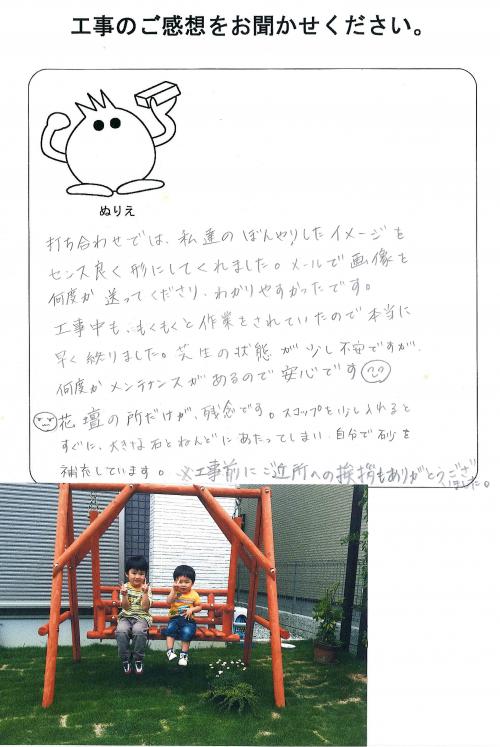 工事のご感想をお聞かせください。
ぬりえ
打ち合わせでは、私達のぼんやりしたイメージを
センス良く形にしてくれました。メールで画像を
何度か送ってくださり、わかりやすかったです。
工事中も、もくもくと作業をされていたので本当に
早く終りました。芝生の状態が少し不安ですが、
何度かメンテナンスがあるので安心です
花壇の所だけが、残念です。スコップを少し入れると
すぐに、大きな石とねんどにあたってしまい、自分で砂を
補充しています。※工事前にご近所への挨拶もありがとうござい
ました。